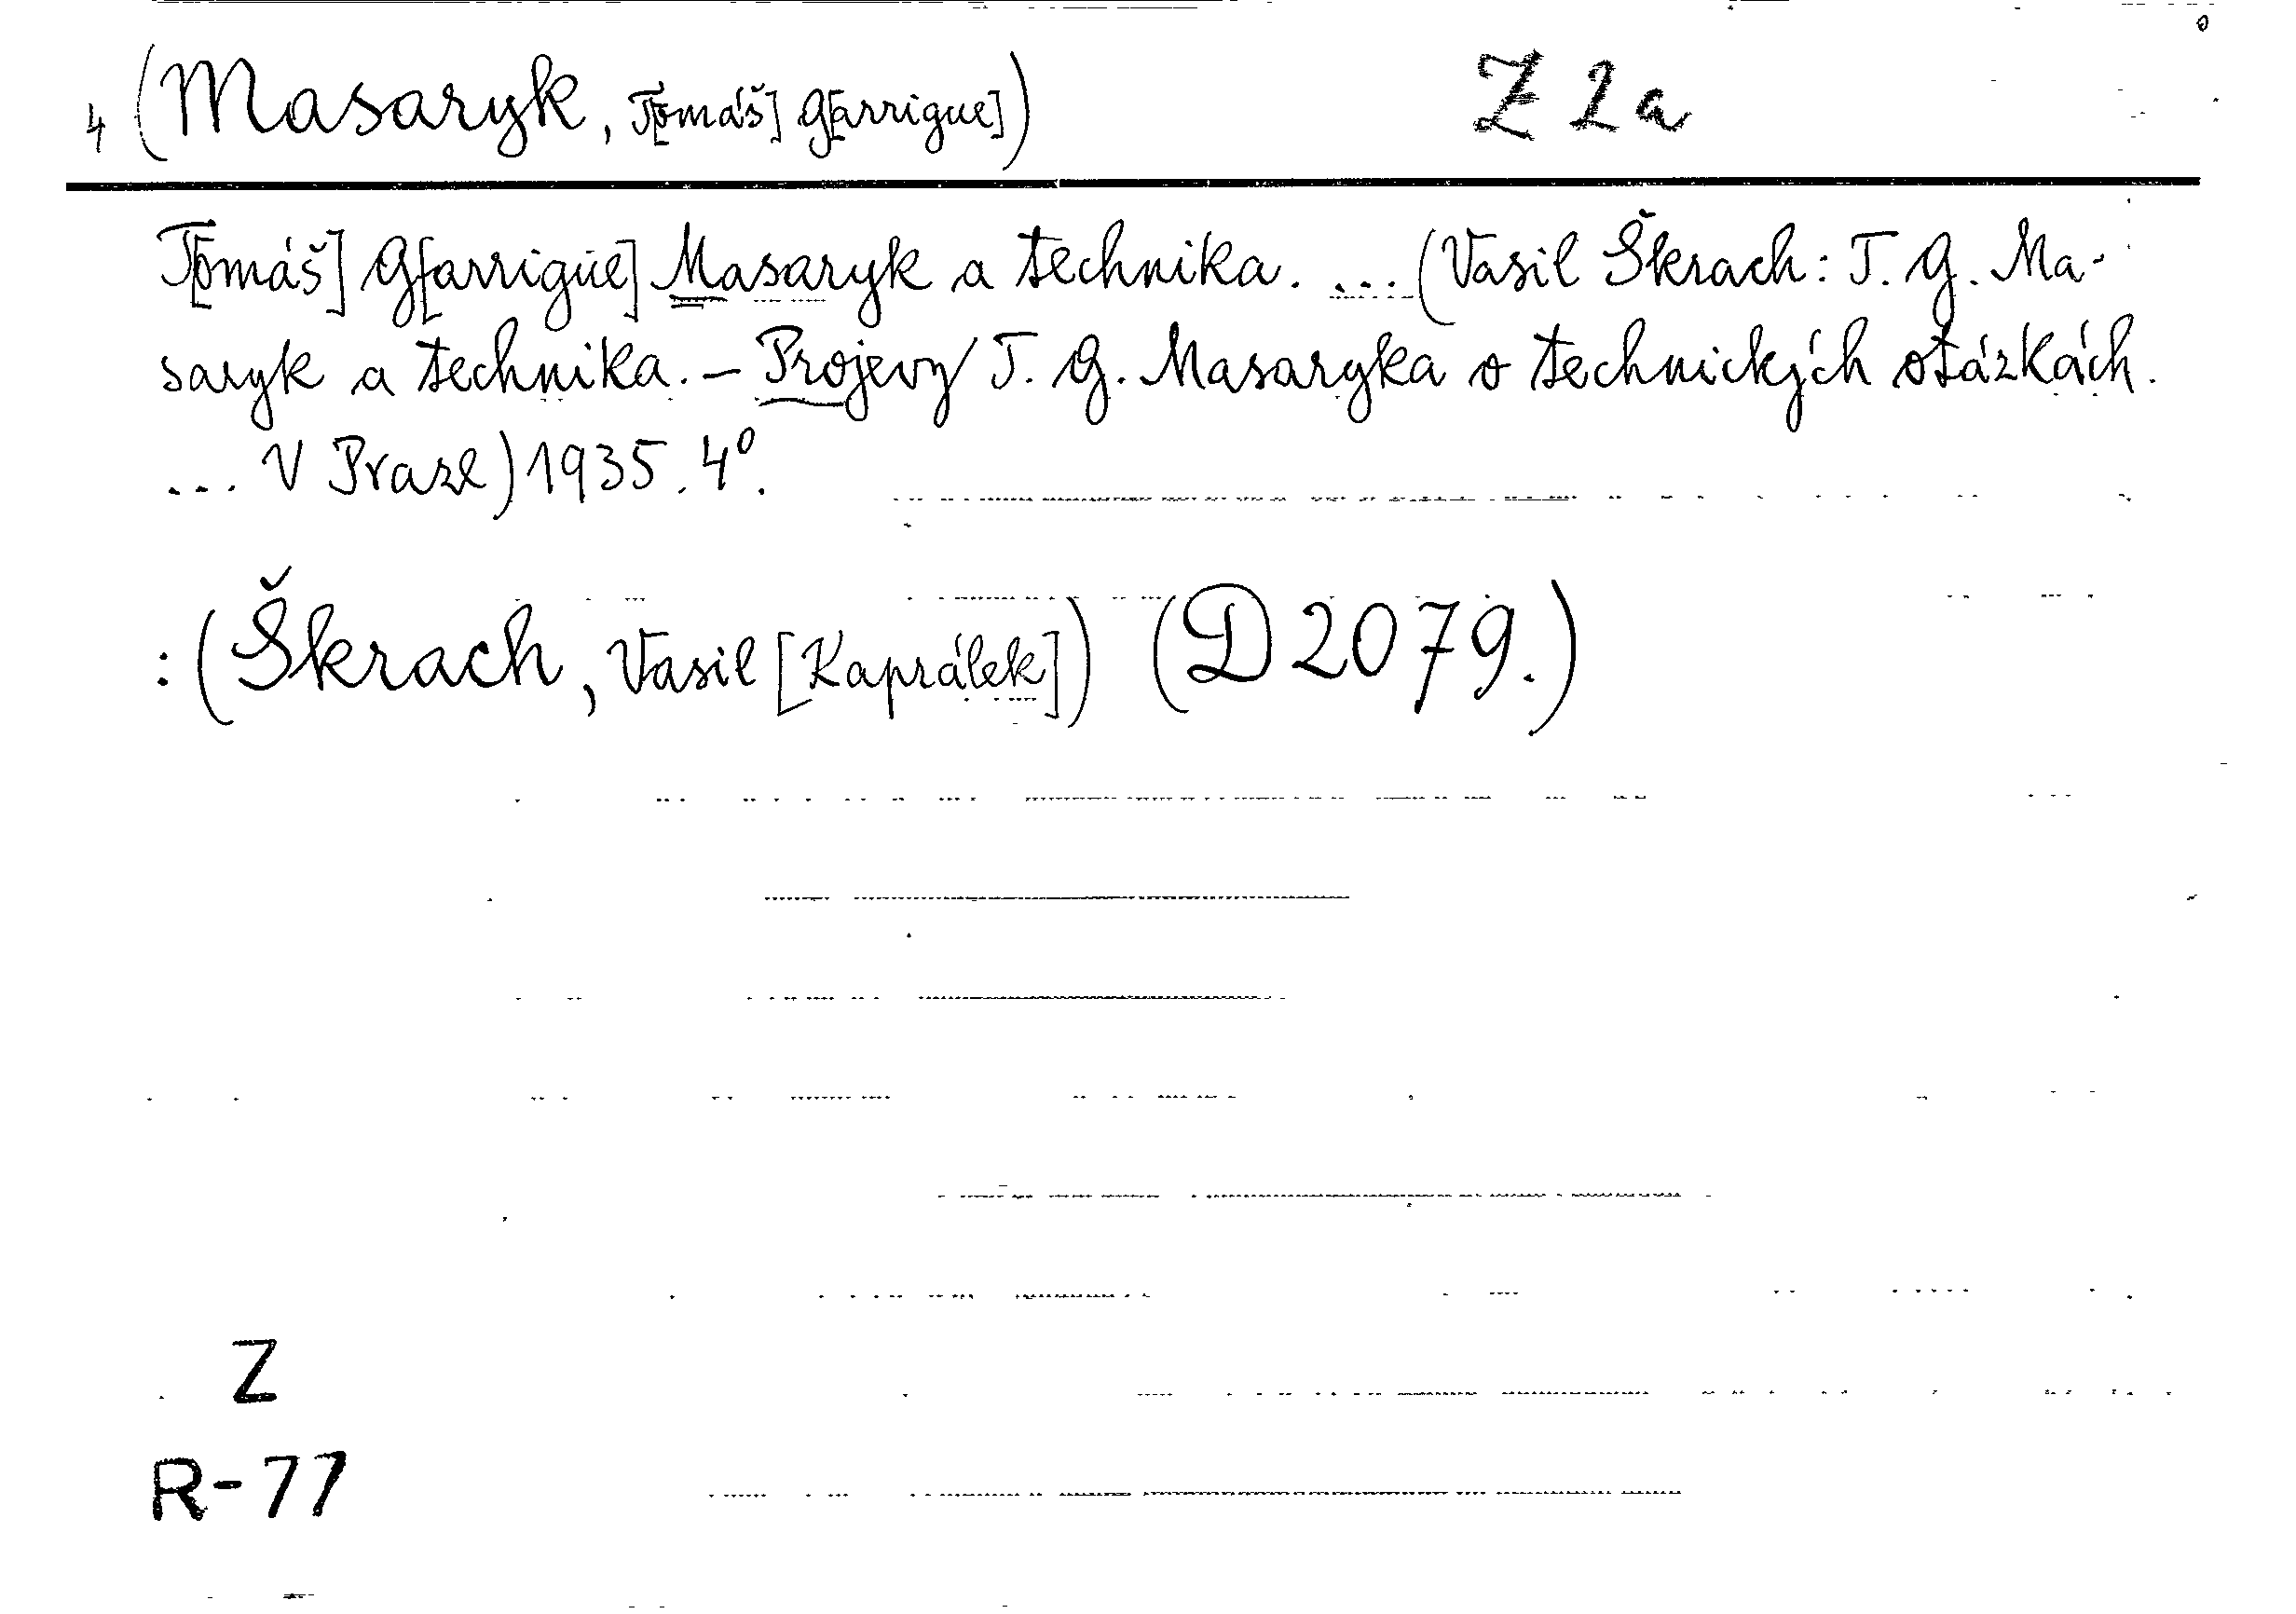 4 (Masaryk, T[omáš] G[arrigue]) Z 2a
T[omáš] G[arrigue] Masaryk a technika. ... (Vasil Škrach: T. G. Ma-
saryk a technika. — Projevy T. G. Masaryka o technických otázkách.
... V Praze) 1935. 4°.
: (Škrach, Vasil [Kaprálek]) (D 2079.)
Z
R-77